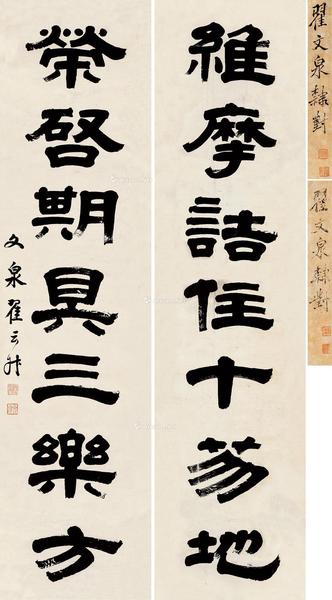 維摩詰住十笏地
榮啓期具三樂方
文泉翟云升
翟文泉隸對
翟文泉隸對